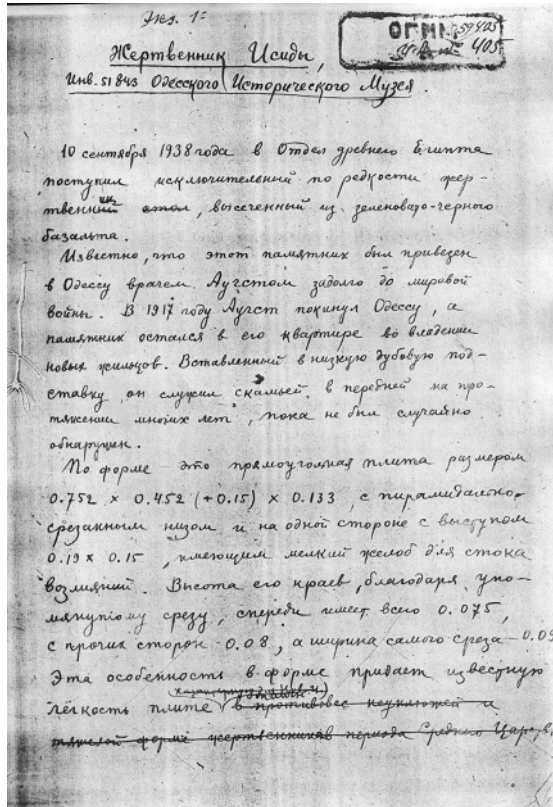 Экз. 1
ОГМИ 59405
405
Жертвенник Исиды,
Инв. 51843 Одесского Исторического Музея.
10 сентября 1938 года в Отдел древнего Египта
поступил исключительный по редкости жер-
твенник, высеченный из зеленовато-черного
базальта.
Известно, что этот памятник был привезен
в Одессу врачем Аугстом задолго до мировой
войны. В 1917 году Аугст покинул Одессу, а
памятник остался в его квартире во владении
новых жильцов. Вставленный в низкую дубовую под-
ставку, он служил скамьей в передней на про-
тяжении многих лет, пока не был случайно
обнаружен.
По форме это прямоугольная плита размером
0.752 × 0.452 (+0.15) × 0.133, с пирамидально-
срезанным низом и на одной стороне с выступом
0.19 × 0.15, имеющим мелкий желоб для стока
возлияний. Высота его краев, благодаря упо-
мянутому срезу, спереди имеет всего 0.075,
с прочих сторон - 0.08, а ширина самого среза - 0.09
Эта особенность в форме придает известную
легкость плите в противовес неуклюжей и
тяжелой форме жертвенников периода Среднего Царств